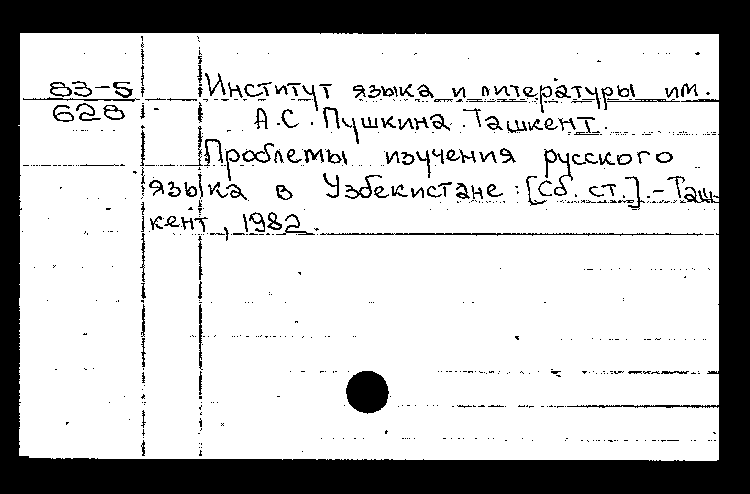 83-5
628
Институт языка и литературы им.
А.С. Пушкина. Ташкент.
Проблемы изучения русского
языка в Узбекистане: [Сб. ст.]. - Таш-
кент, 1982.